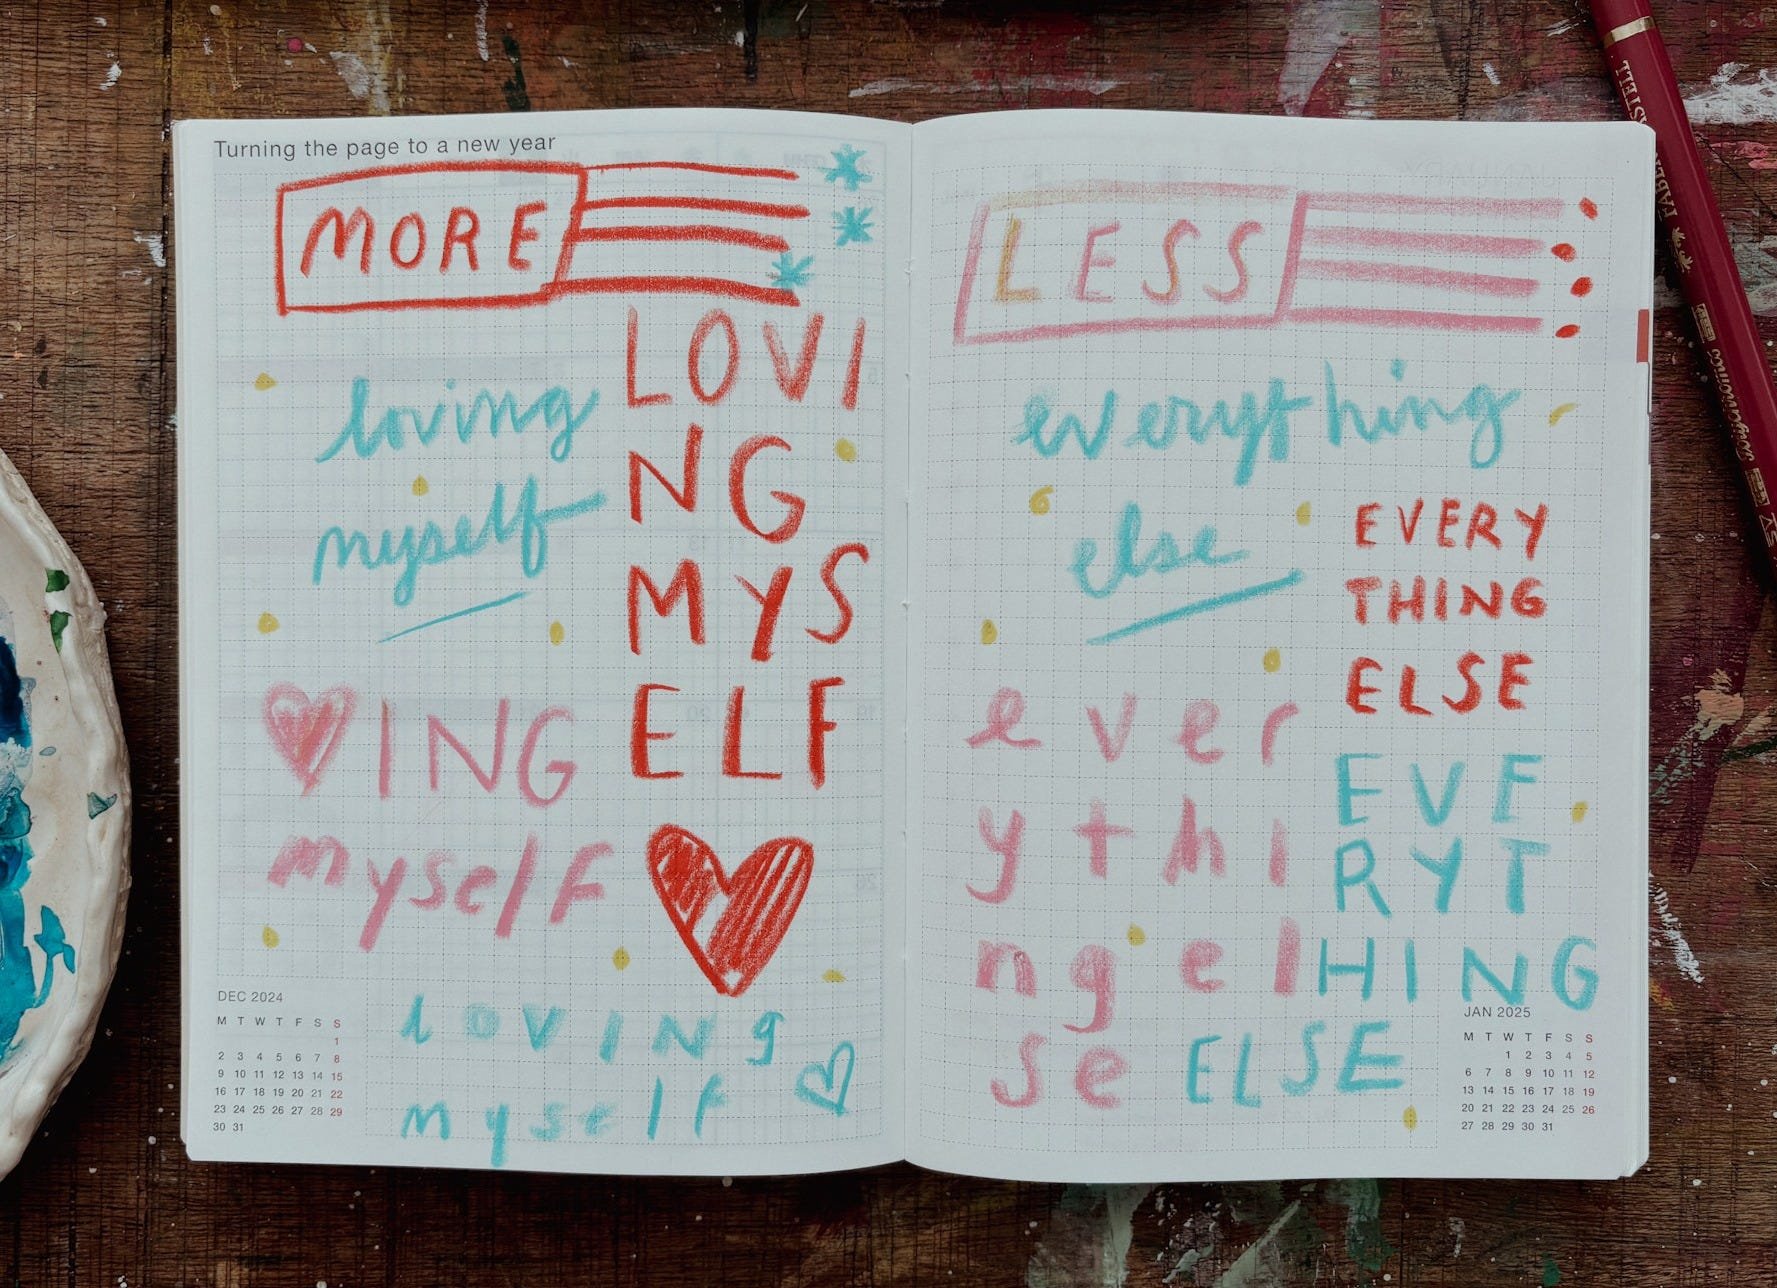 Turning the page to a new year
MORE
loving
myself
LOVI
NG
MYS
ELF
ING
myself
lovINg
myself
DEC 2024
M T W T F S S
1
2 3 4 5 6 7 8
9 10 11 12 13 14 15
16 17 18 19 20 21 22
23 24 25 26 27 28 29
30 31
LESS
everything
else
EVERY
THING
ELSE
ever
ythi
ngel
se
EVE
RYT
HING
ELSE
JAN 2025
M T W T F S S
1 2 3 4 5
6 7 8 9 10 11 12
13 14 15 16 17 18 19
20 21 22 23 24 25 26
27 28 29 30 31